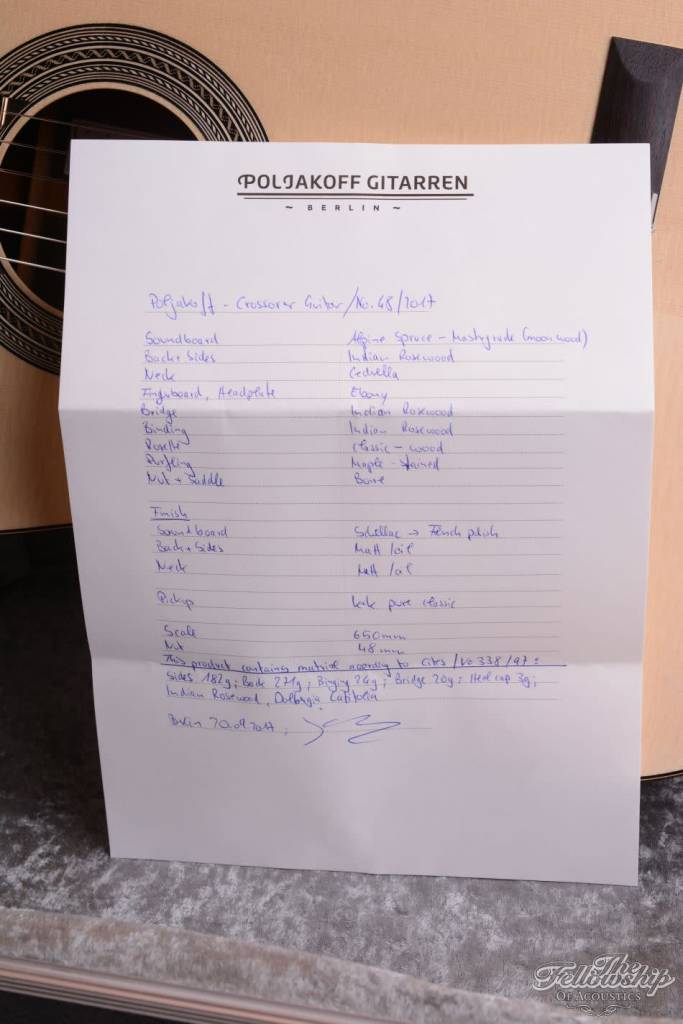 POLJAKOFF GITARREN
~ BERLIN ~
Poljakoff - Crossover Guitar / No. 48 / 2017
Soundboard Alpine Spruce - Mastergrade (moonwood)
Back + Sides Indian Rosewood
Neck Cedrella
Fingerboard, Headplate Ebony
Bridge Indian Rosewood
Binding Indian Rosewood
Rosette classic - wood
Purfling Maple - stained
Nut + Saddle Bone
Finish
Soundboard Schellac → French polish
Back + Sides Matt / oil
Neck Matt / oil
Pickup k&k pure classic
Scale 650mm
Nut 48mm
This product contains material according to Cites / VO 338 / 97 :
Sides 182g ; Back 271g ; Binging 24g ; Bridge 20g ; Heel cap 3g ;
Indian Rosewood, Dalbergia Latifolia
Berlin 2017 ;
The
Fellowship
OF ACOUSTICS